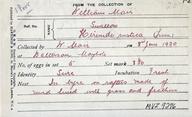 FROM THE COLLECTION OF
William Mair
Ref. No.
Swallow
Hirundo rustica Linn.
Collected by W. Mair on 8 June 1920
at
No. of eggs in set 5 Set mark
Identity Sure Incubation Fresh
Nest In open on rafters made of
mud lined with grass and feathers